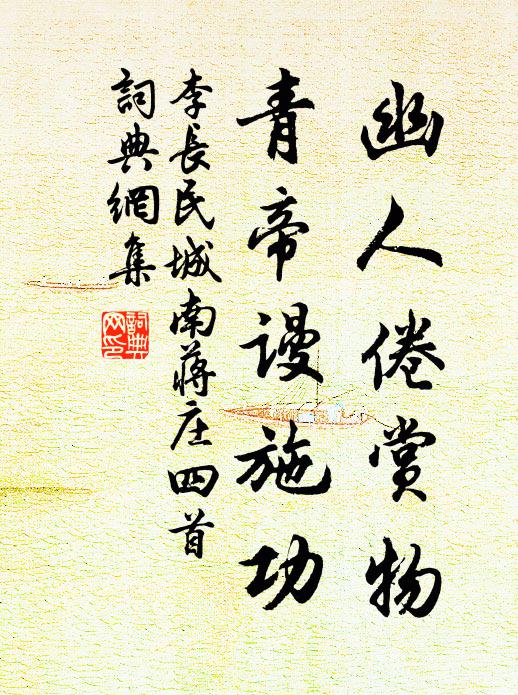 幽人倦赏物
青帝谩施功
李長民城南蒋庄四首
詞典網集
詞典
网印